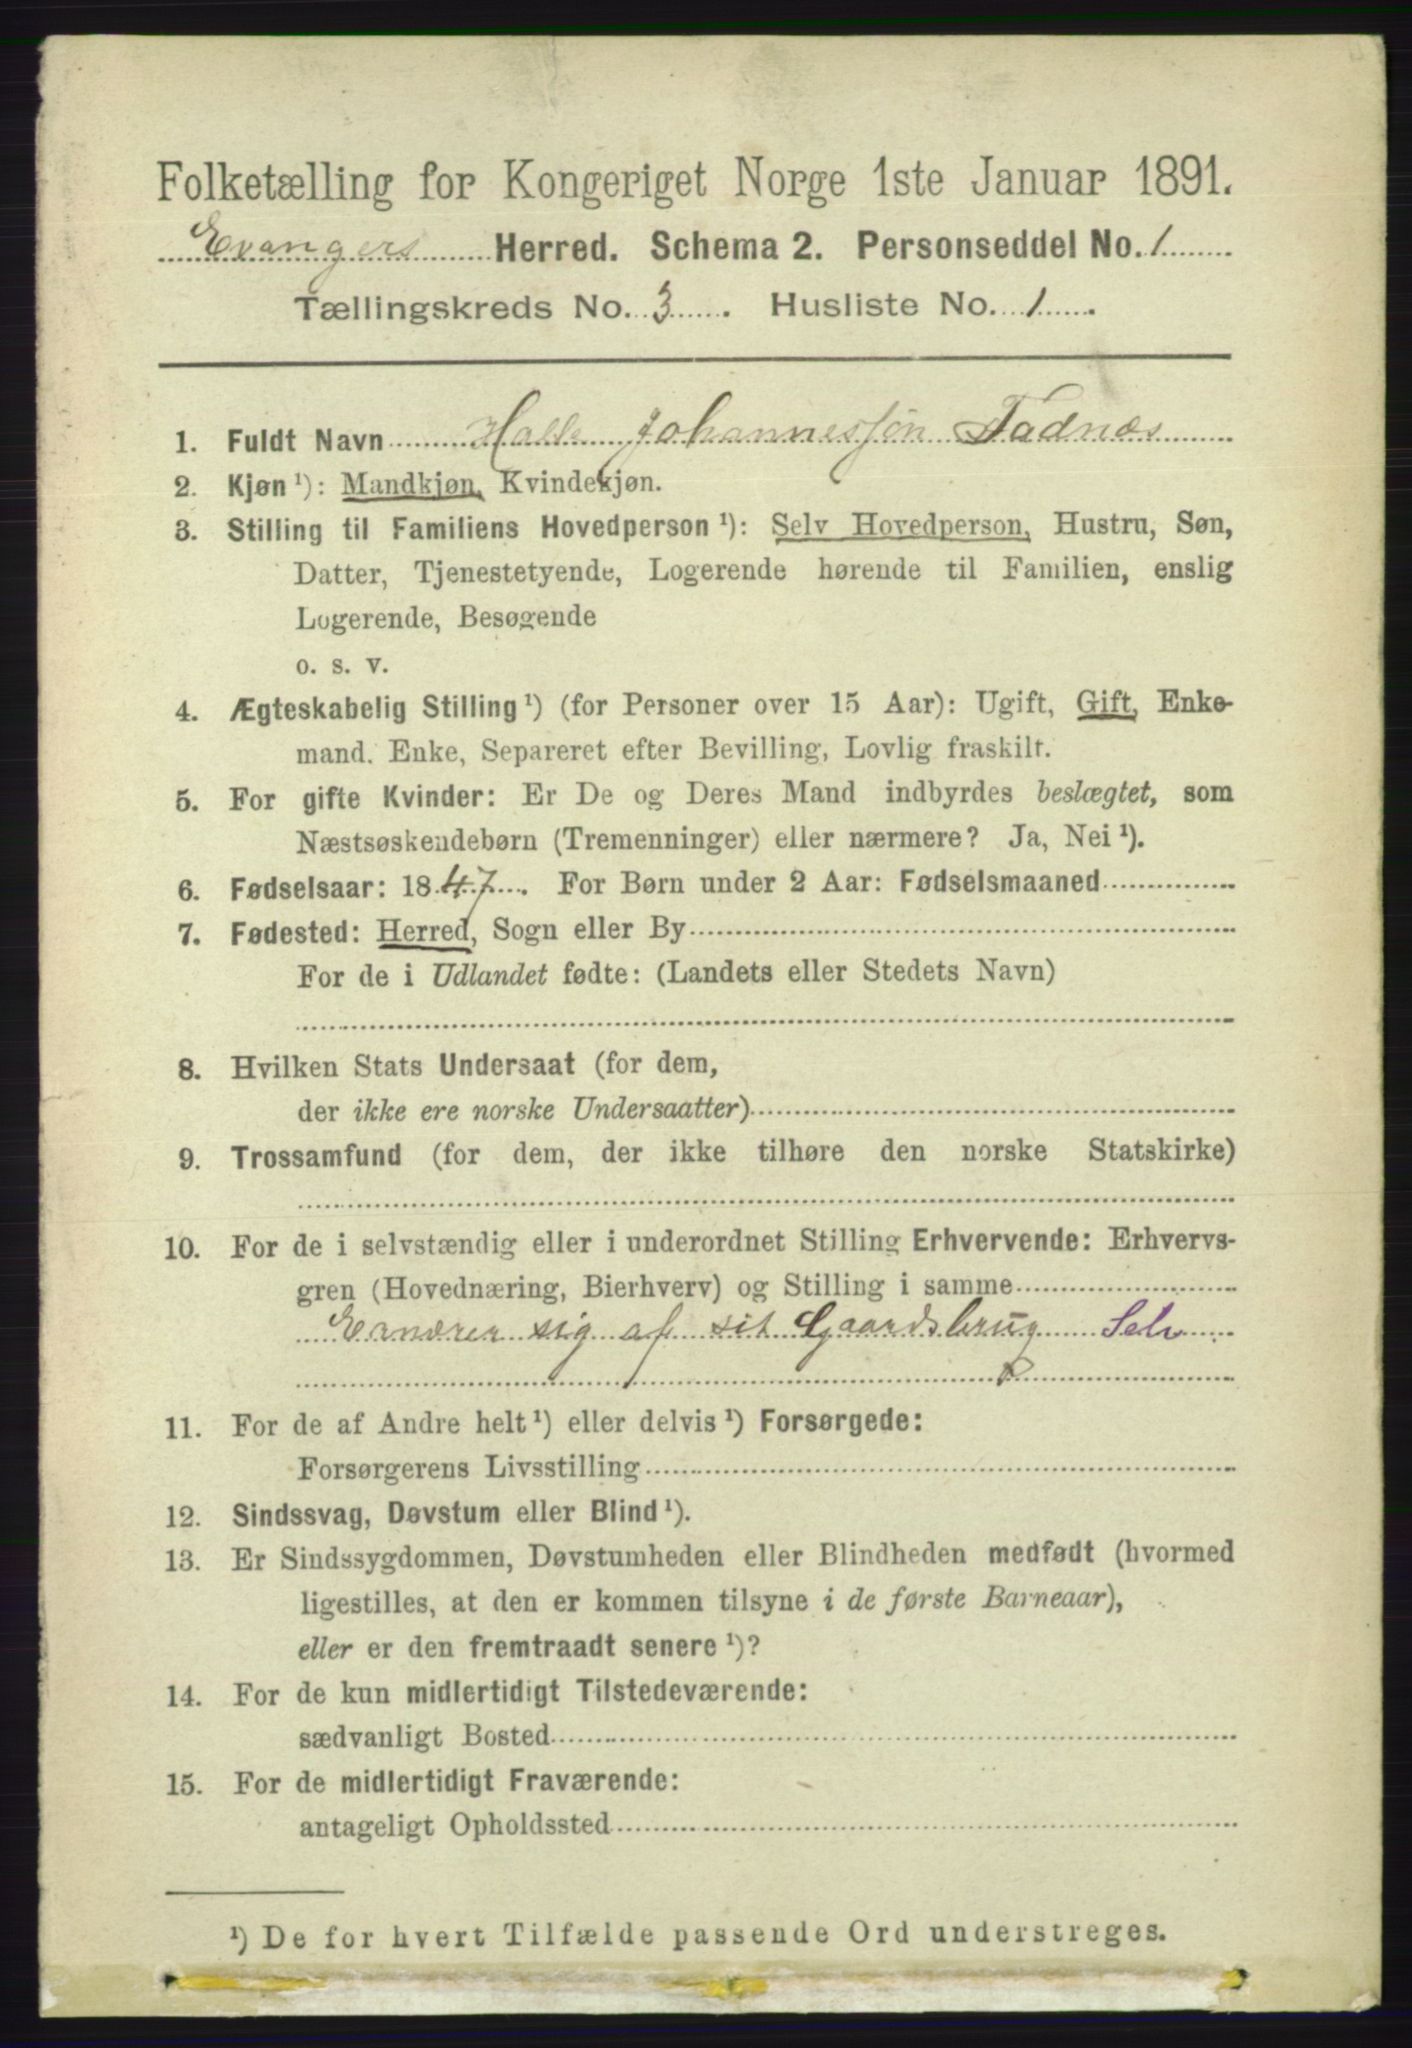 Folketælling for Kongeriget Norge 1ste Januar 1891.
Evangers Herred. Schema 2. Personseddel No. 1
Tællingskreds No. 3. Husliste No. 1.
1. Fuldt Navn Halle Johannessøn Fadnæs
2. Kjøn ¹): Mandkjøn, Kvindekjøn.
3. Stilling til Familiens Hovedperson ¹): Selv Hovedperson, Hustru, Søn,
Datter, Tjenestetyende, Logerende hørende til Familien, enslig
Logerende, Besøgende
o. s. v.
4. Ægteskabelig Stilling ¹) (for Personer over 15 Aar): Ugift, Gift, Enke-
mand. Enke, Separeret efter Bevilling, Lovlig fraskilt.
5. For gifte Kvinder: Er De og Deres Mand indbyrdes beslægtet, som
Næstsøskendebørn (Tremenninger) eller nærmere? Ja, Nei ¹).
6. Fødselsaar: 1847. For Børn under 2 Aar: Fødselsmaaned
7. Fødested: Herred, Sogn eller By
For de i Udlandet fødte: (Landets eller Stedets Navn)
8. Hvilken Stats Undersaat (for dem,
der ikke ere norske Undersaatter)
9. Trossamfund (for dem, der ikke tilhøre den norske Statskirke)
10. For de i selvstændig eller i underordnet Stilling Erhvervende: Erhvervs-
gren (Hovednæring, Bierhverv) og Stilling i samme
Ernærer sig af sit Gaardsbrug Selv
11. For de af Andre helt ¹) eller delvis ¹) Forsørgede:
Forsørgerens Livsstilling
12. Sindssvag, Døvstum eller Blind ¹).
13. Er Sindssygdommen, Døvstumheden eller Blindheden medfødt (hvormed
ligestilles, at den er kommen tilsyne i de første Barneaar),
eller er den fremtraadt senere ¹)?
14. For de kun midlertidigt Tilstedeværende:
sædvanligt Bosted
15. For de midlertidigt Fraværende:
antageligt Opholdssted
¹) De for hvert Tilfælde passende Ord understreges.